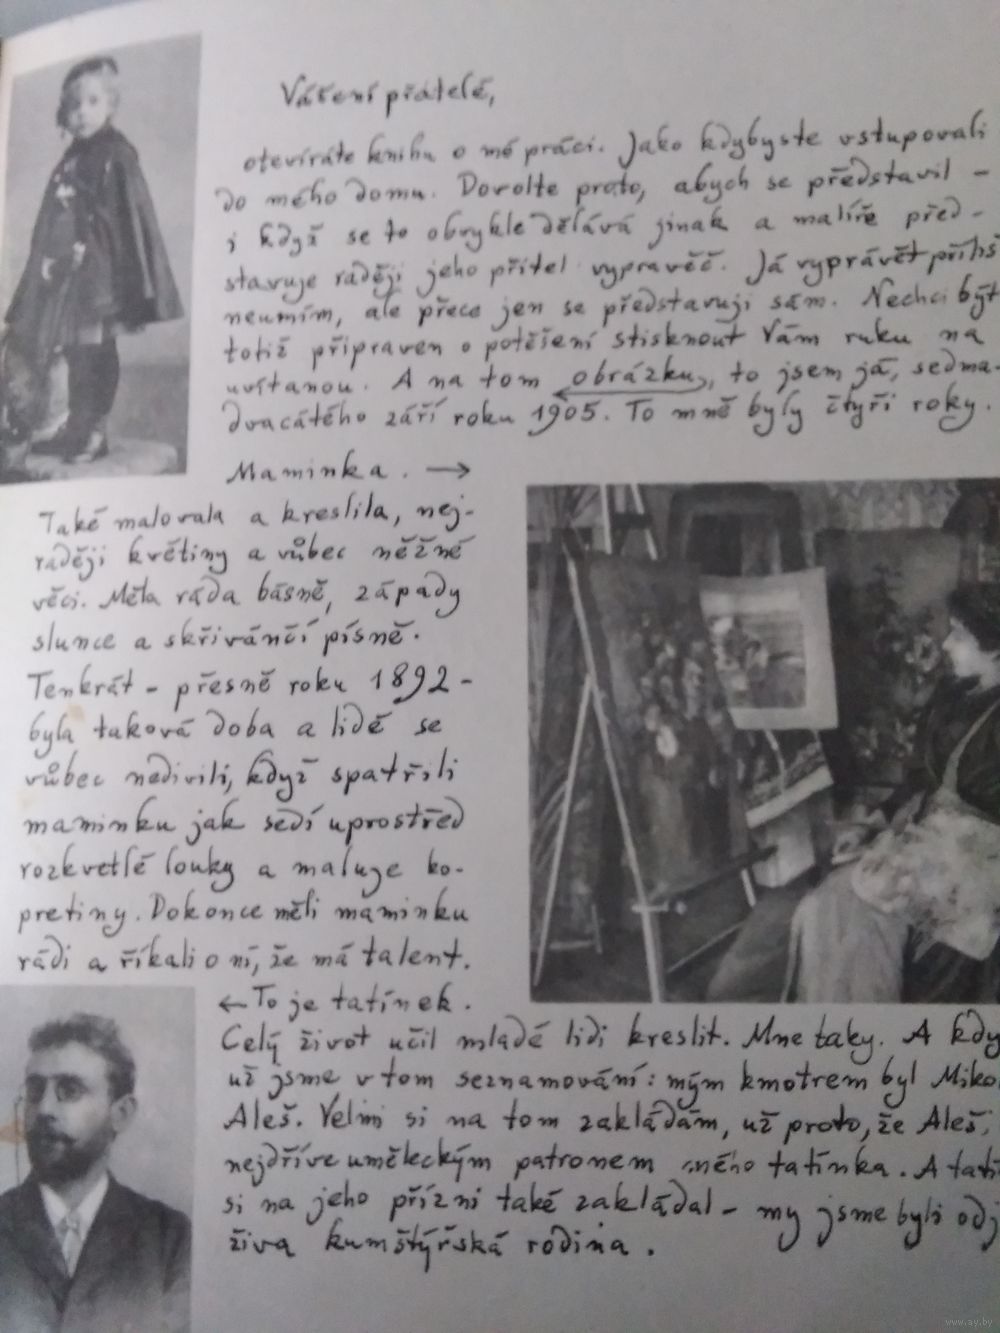 Vážení přátelé,
otevíráte knihu o mé práci. Jako kdybyste vstupovali
do mého domu. Dovolte proto, abych se představil –
i když se to obvykle dělává jinak a malíře před-
stavuje raději jeho přítel vypravěč. Já vyprávět příliš
neumím, ale přece jen se představuji sám. Nechci být
totiž připraven o potěšení stisknout Vám ruku na
uvítanou. A na tom obrázku, to jsem já, sedma-
dvacátého září roku 1905. To mně byly čtyři roky.
Maminka. →
Také malovala a kreslila, nej-
raději květiny a vůbec něžné
věci. Měla ráda básně, západy
slunce a skřivánčí písně.
Tenkrát – přesně roku 1892 –
byla taková doba a lidé se
vůbec nedivili, když spatřili
maminku jak sedí uprostřed
rozkvetlé louky a maluje ko-
pretiny. Dokonce měli maminku
rádi a říkali o ní, že má talent.
← To je tatínek.
Celý život učil mladé lidi kreslit. Mne taky. A kdy
už jsme v tom seznamování: mým kmotrem byl Miko
Aleš. Velmi si na tom zakládám, už proto, že Aleš
nejdříve uměleckým patronem mého tatínka. A tatí
si na jeho přízni také zakládal – my jsme byli odj
živa kumštýřská rodina.
www.ay.by